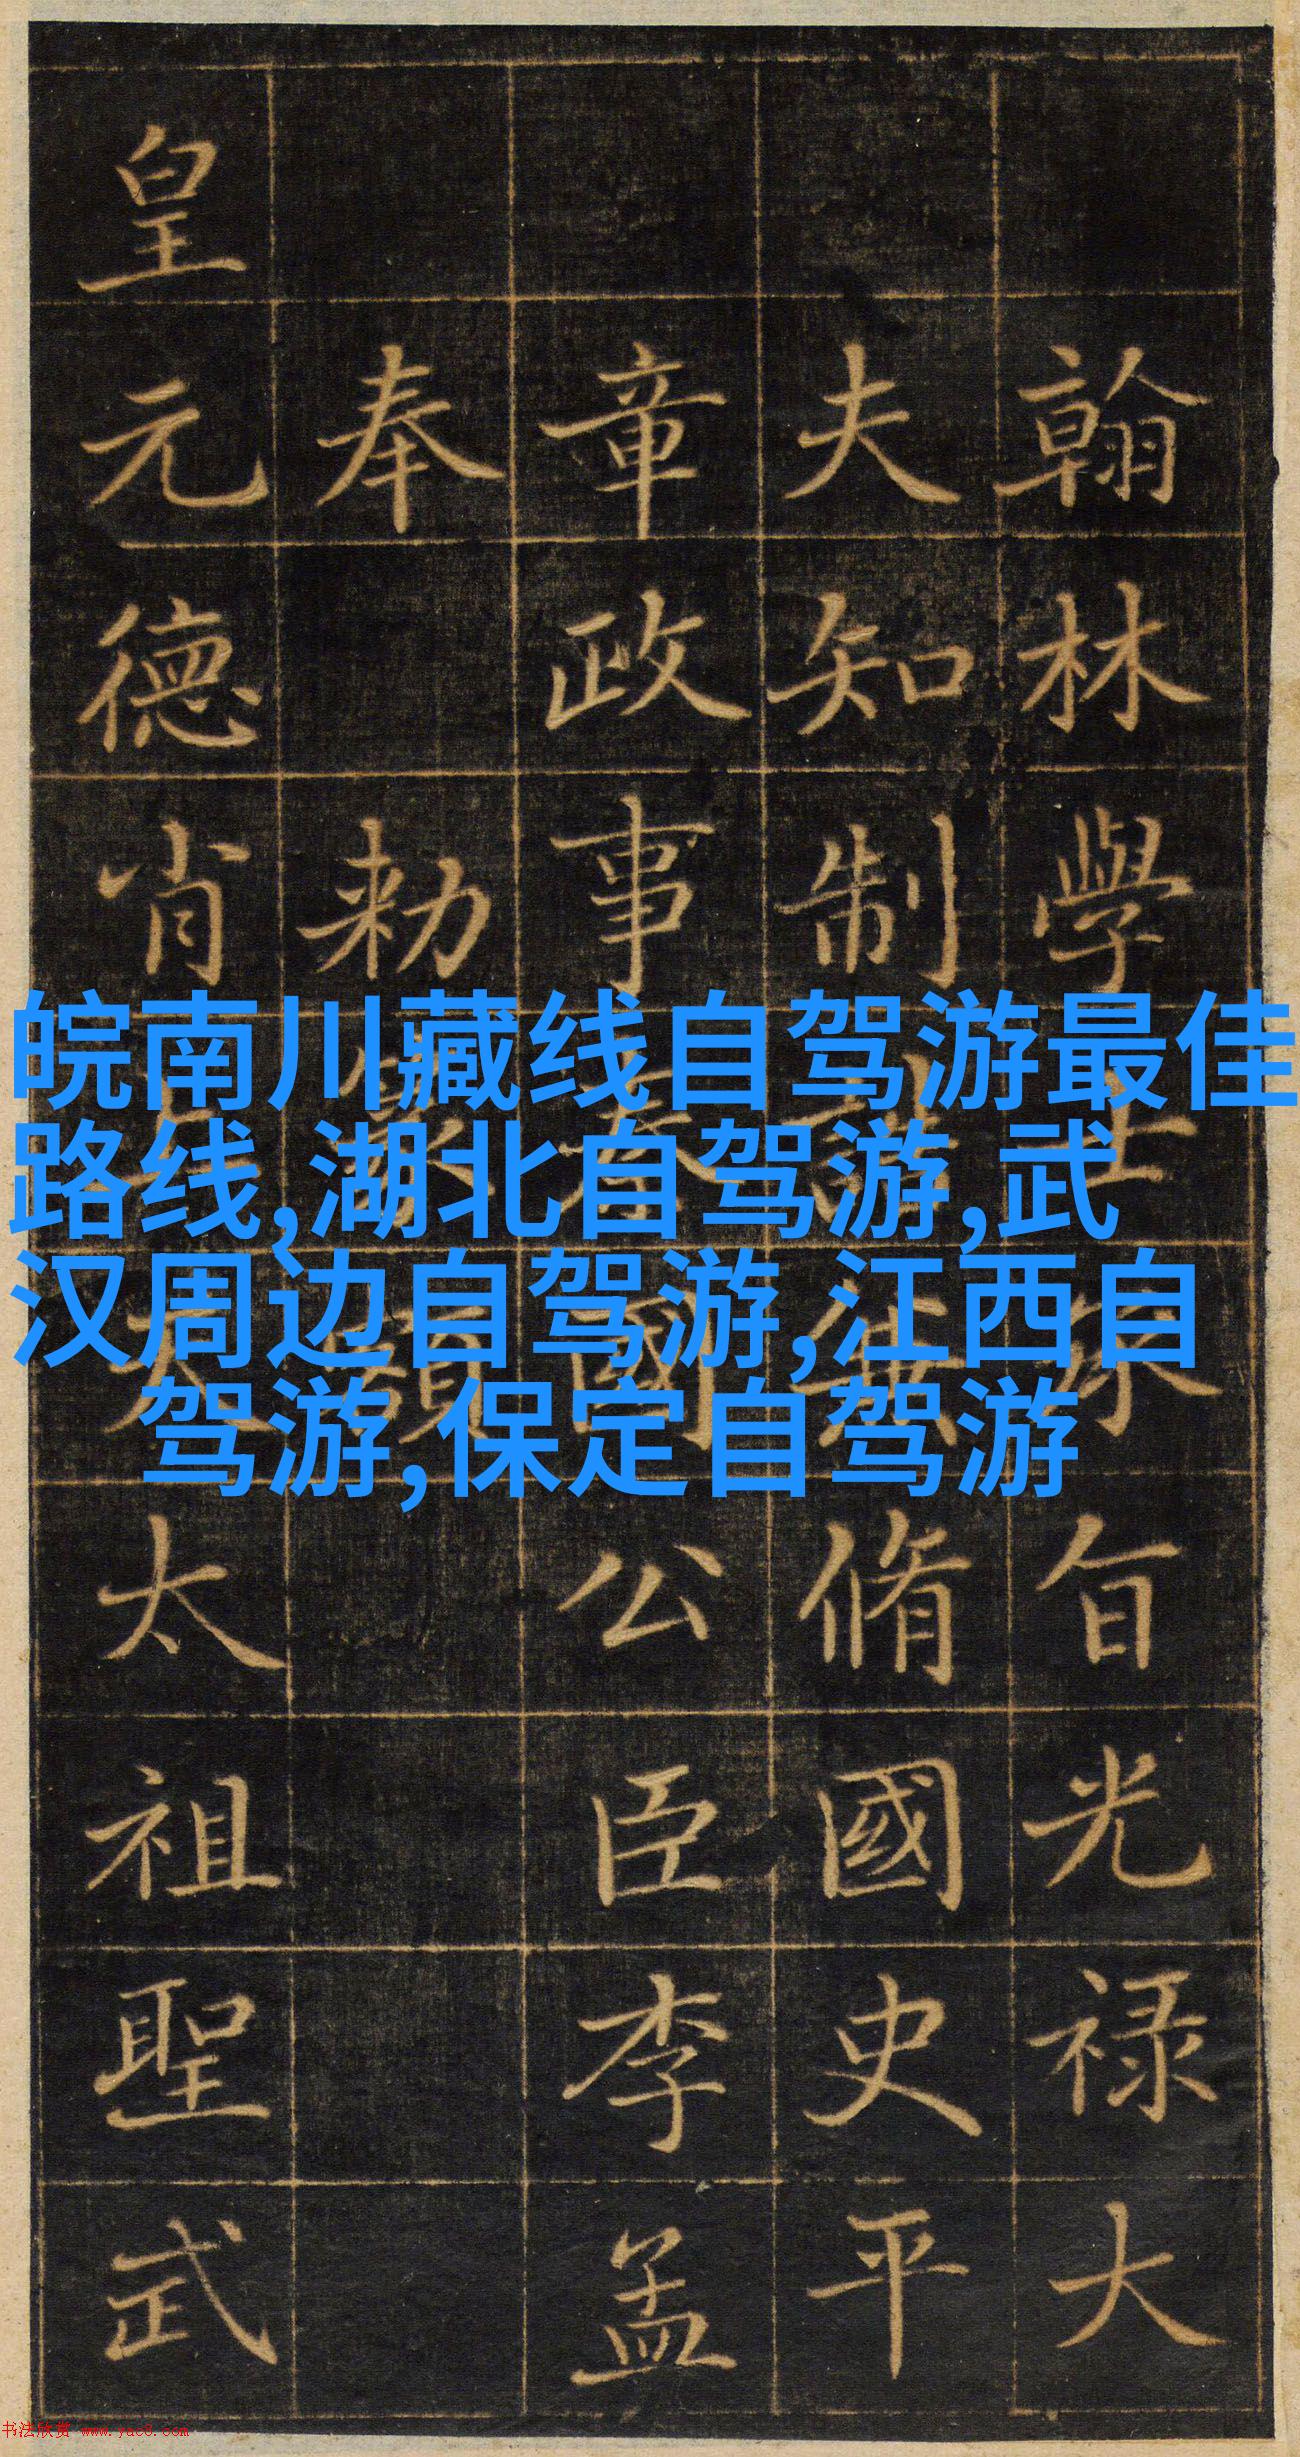 翰林學士承旨光禄大
夫知制誥兼脩國史平
章政事秦國公臣李孟
奉勑篆額
皇元德肖天太祖聖武
皖南川藏线自驾游最佳
路线,湖北自驾游,武
汉周边自驾游,江西自
驾游,保定自驾游
书法欣赏 www.yac8.com